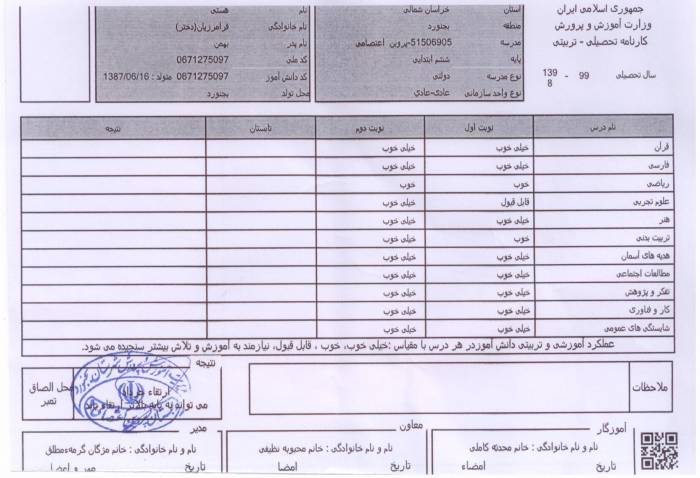 جمهوری اسلامی ایران
وزارت آموزش و پرورش
کارنامه تحصیلی - تربیتی
سال تحصیلی 99 - 1398
استان خراسان شمالی
منطقه بجنورد
مدرسه 51506905-پروین اعتصامی
پایه ششم ابتدایی
نوع مدرسه دولتی
نوع واحد سازمانی عادی-عادی
نام هستی
نام خانوادگی فرامرزیان(دختر)
نام پدر بهمن
کد ملی 0671275097
کد دانش آموز 0671275097 متولد : 1387/06/16
محل تولد بجنورد
نام درس نوبت اول نوبت دوم تابستان نتیجه
قرآن خیلی خوب خیلی خوب
فارسی خیلی خوب خیلی خوب
ریاضی خوب خوب
علوم تجربی قابل قبول خیلی خوب
هنر خیلی خوب خیلی خوب
تربیت بدنی خوب خیلی خوب
هدیه های آسمان خیلی خوب خیلی خوب
مطالعات اجتماعی خیلی خوب خیلی خوب
تفکر و پژوهش خیلی خوب خیلی خوب
کار و فناوری خیلی خوب خیلی خوب
شایستگی های عمومی خیلی خوب خیلی خوب
عملکرد آموزشی و تربیتی دانش آموزدر هر درس با مقیاس :خیلی خوب، خوب ، قابل قبول، نیازمند به آموزش و تلاش بیشتر سنجیده می شود.
ملاحظات
نتیجه
ارتقاء
می تواند به پایه بالاتر ارتقاء یابد
محل الصاق
تمبر
آموزگار
نام و نام خانوادگی : خانم محدثه کاملی
تاریخ امضاء
معاون
نام و نام خانوادگی : خانم محبوبه نظیفی
تاریخ امضا
مدیر
نام و نام خانوادگی : خانم مژگان گرمه‌مطلق
تاریخ مهر و امضا